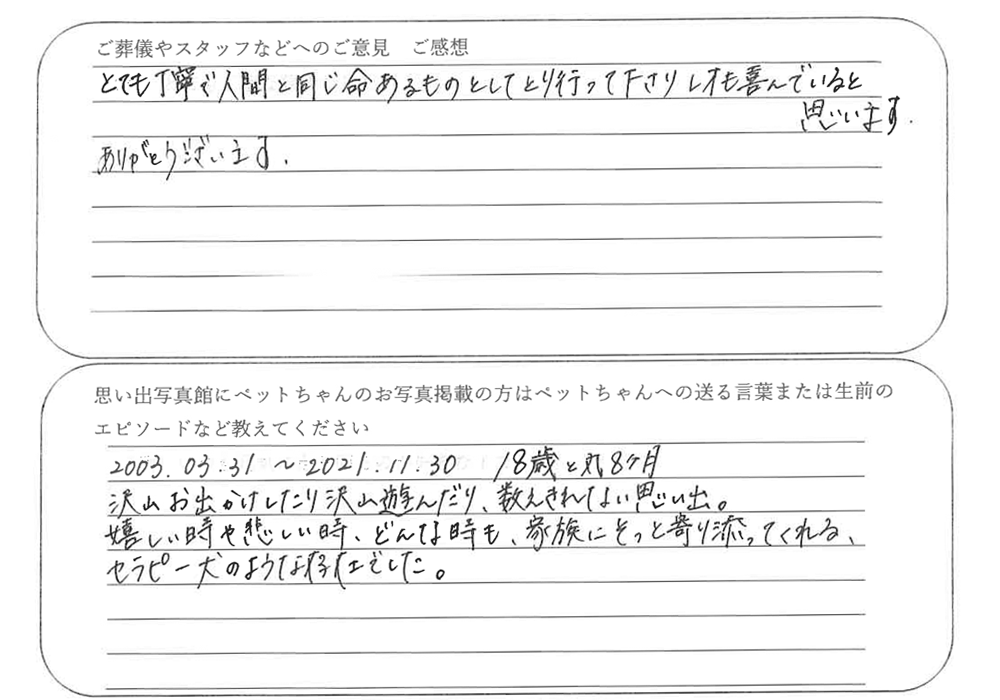 ご葬儀やスタッフなどへのご意見　ご感想
とても丁寧で人間と同じ命あるものとしてとり行って下さりレオも喜んでいると
思います.
ありがとうございます.
思い出写真館にペットちゃんのお写真掲載の方はペットちゃんへの送る言葉または生前の
エピソードなど教えてください
2003.03.31～2021.11.30　18歳と丸8ヶ月
沢山お出かけしたり沢山遊んだり、数えきれない思い出。
嬉しい時や悲しい時、どんな時も、家族にそっと寄り添ってくれる、
セラピー犬のような存在でした。